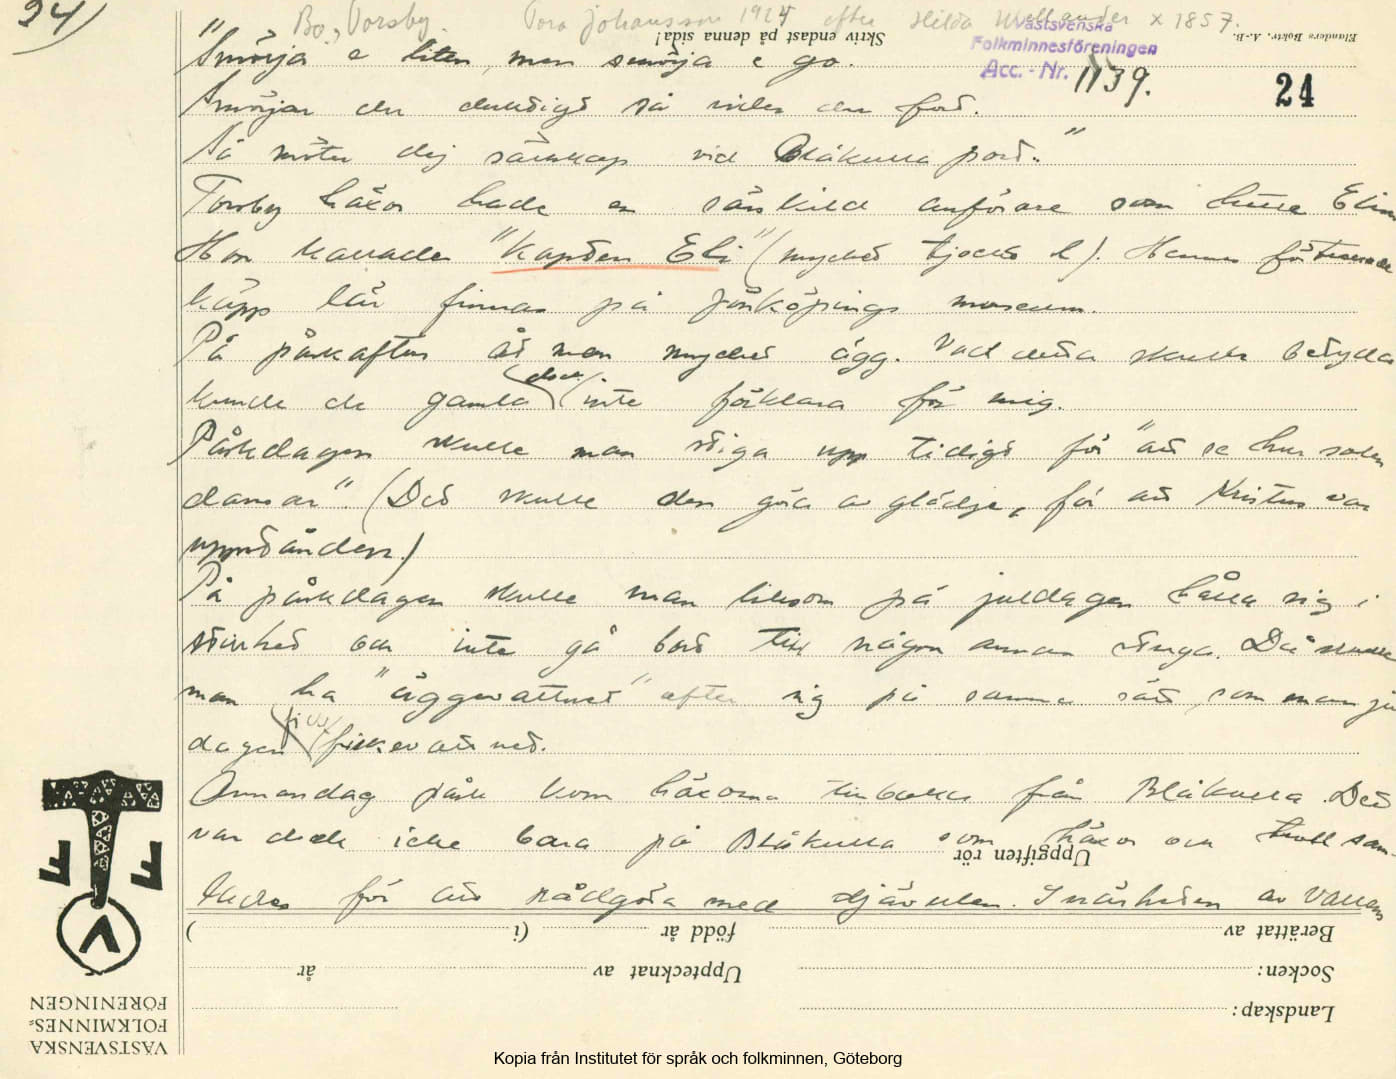 24)
Bo, Torsby. Tora Johansson 1924 efter Hilda Wellander x 1857.
Skriv endast på denna sida!
Elanders Boktr. A.-B.
Västsvenska
Folkminnesföreningen
Acc. - Nr. 1139.
24
"Smörja e liten, men smörja e go.
Smörjer du duktigt så rider du fort.
Så möter dig sällskap vid Blåkulla port."
Torsby häxor hade en särskild anförare som hette
Hon kallades "Kapten Eli" (mycket tjockt l). Hennes förtrollade
käpp lär finnas på Jönköpings museum.
På påskafton åt man mycket ägg. Vad detta skulle betyda
kunde de gamla dock inte förklara för mig.
Påskdagen skulle man stiga upp tidigt för "att se hur solen
dansar". (Det skulle den göra av glädje, för att Kristus var
uppstånden.)
På påskdagen skulle man liksom på juldagen hålla sig i
stillhet och inte gå bort till någon annan stuga. Då skulle
man ha "äggevattnet" efter sig på samma sätt, som man ju
dagen fick fiskevattnet.
Annandag påsk kom häxorna tillbaka från Blåkulla. Det
var dock icke bara på Blåkulla som häxor och troll sam-
lades för att rådgöra med djävulen. I närheten av Vallens
Uppgiften rör
Berättat av född år (i )
Socken: Upptecknat av år
Landskap:
VÄSTSVENSKA
FOLKMINNES-
FÖRENINGEN
Kopia från Institutet för språk och folkminnen, Göteborg